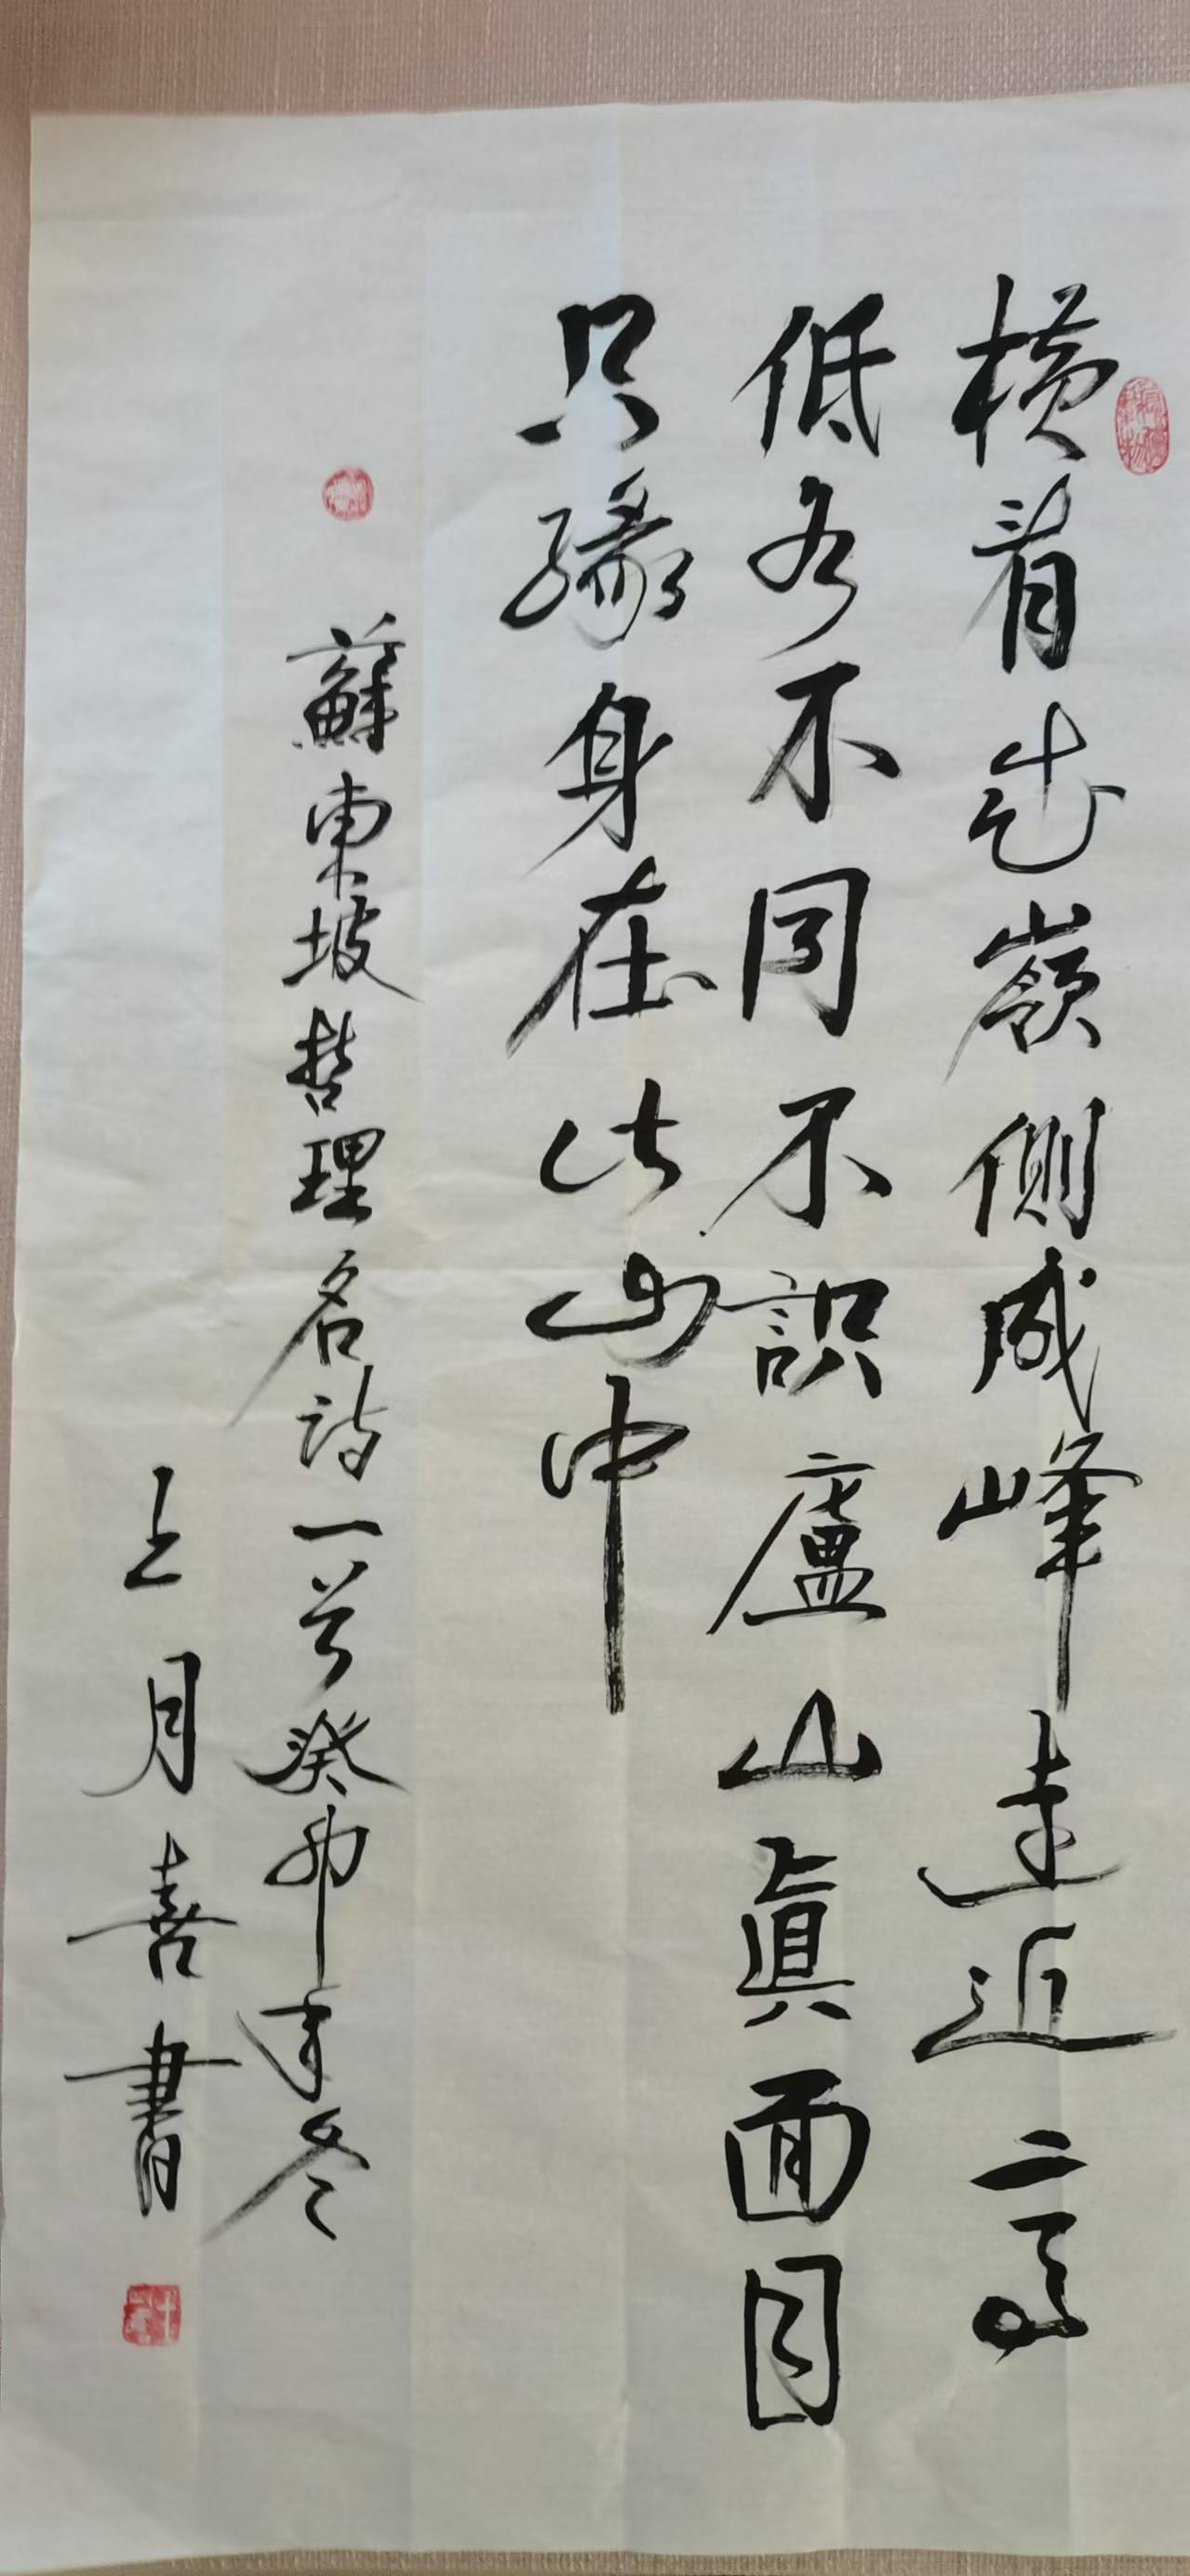 橫看成嶺側成峰遠近高
低各不同不識廬山眞面目
只緣身在此山中
蘇東坡哲理名詩一首癸卯冬
月喜書